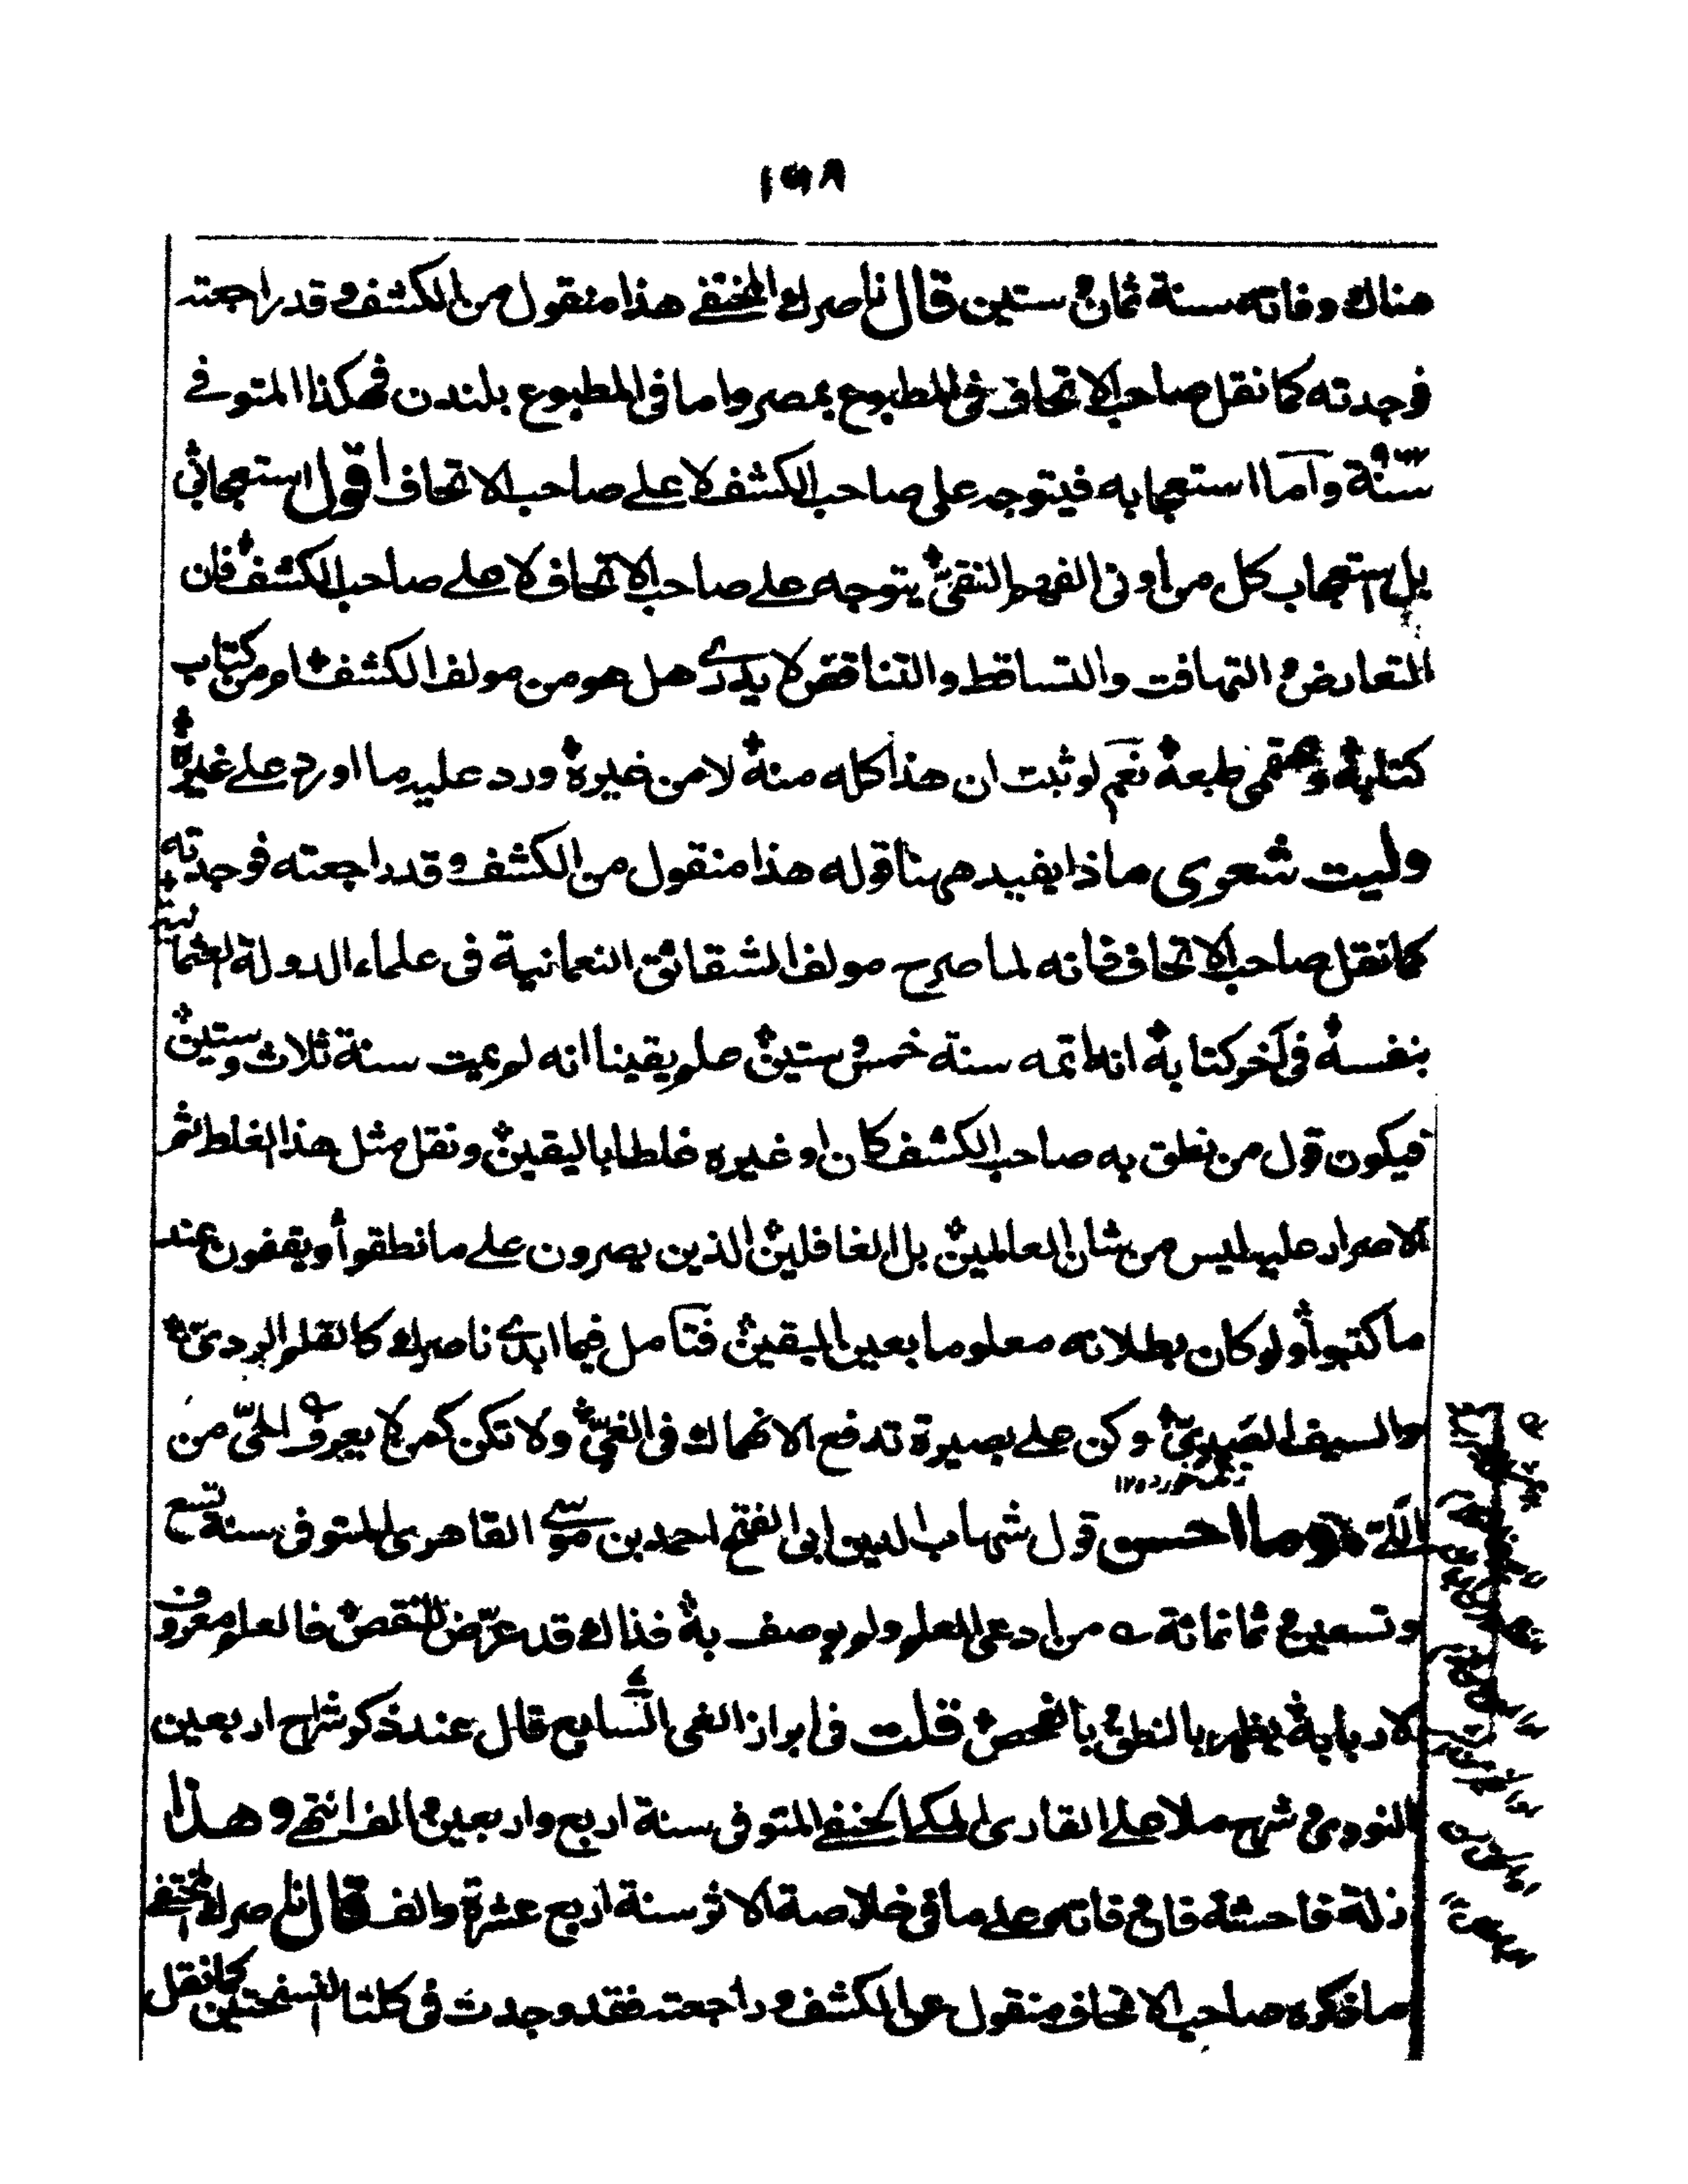 ١٦٨
هناك وفاته سنة ثمان و ستين قال ناصرك المختفے هذا منقول من الكشف و قد راجعته
فوجدته كما نقل صاحب الاتحاف فى المطبوع بمصر واما ما فى المطبوع بلندن فهكذا المتوفے
سنة واما استعجابه فيتوجه على صاحب الكشف لا علے صاحب الاتحاف اقول استعجابى
بل استعجاب كل من اوتى الفهم النقىّ يتوجه علے صاحب الاتحاف لا علے صاحب الكشف فان
التعارض و التهافت والتساقط والتناقض لا يدرے هل هو من مولف الكشف ام من كتاب
كتابه و مصححى طبعه نعم لو ثبت ان هذا كله منه لا من غيره ورد عليه ما اورد علے غيره
وليت شعرى ماذا يفيد ههنا قوله هذا منقول من الكشف و قد راجعته فوجدته
كما نقل صاحب الاتحاف فانه لما صرح مولف الشقائق النعمانية فى علماء الدولة العثمانية
بنفسه فى آخر كتابه انه اتمه سنة خمس و ستين علم يقينا انه لم يمت سنة ثلاث وستين
فيكون قول من نطق به صاحب الكشف كان او غيره غلطا باليقين و نقل مثل هذا الغلط ثم
الاصرار عليه ليس من شان العالمين بل الغافلين الذين يصرون علے ما نطقوا و يقفون عند
ما كتبوا ولو كان بطلانه معلوما بعين اليقين فتامل فيما ابدے ناصرك كالقلم الردىّ
والسيف الصدىّ وكن علے بصيرة تدفع الانهماك فى الغىّ ولا تكن كمن لا يعرف الحىّ من
اللّے وما احسن قول شهاب الدين ابى الفتح احمد بن موسے القاهرى المتوفى سنة تسع
وتسعين و ثمانمائة ؎ من ادعى العلم ولم يوصف به فذاك قد عرّض للنقص فالعلم معروف
لاربابه يظهر بالنطق و بالفحص قلت فى ابراز الغى السابع قال عند ذكر شراح اربعين
النووى و شرح ملا علے القارى المكے الحنفے المتوفى سنة اربع واربعين و الف انتهے و هذا
زلة فاحشة فان وفاته علے ما فى خلاصة الاثر سنة اربع عشرة والف قال ناصرك المختفے
ما ذكره صاحب الاتحاف منقول عن الكشف و راجعته فقد وجدت فى كلتا النسختين كما نقل